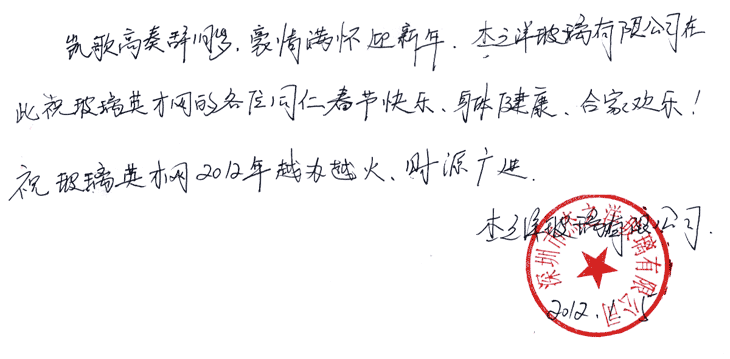 凯歌高奏辞旧岁,豪情满怀迎新年.杰之洋玻璃有限公司在
此祝玻璃英才网的各位同仁春节快乐、身体健康、合家欢乐!
祝玻璃英才网2012年越办越火、财源广进.
杰之洋玻璃有限公司.
深圳市杰之洋玻璃有限公司
2012.1.5